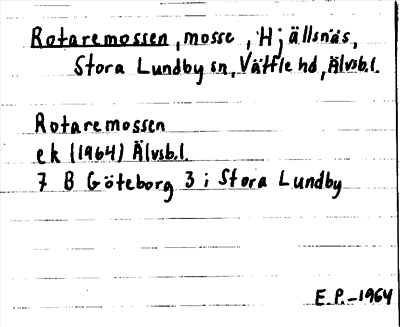 Rotaremossen, mosse, Hjällsnäs,
Stora Lundby sn, Vättle hd, Älvsb.l.
Rotaremossen
ek (1964) Älvsb.l.
7 B Göteborg 3 i Stora Lundby
E.P.-1964